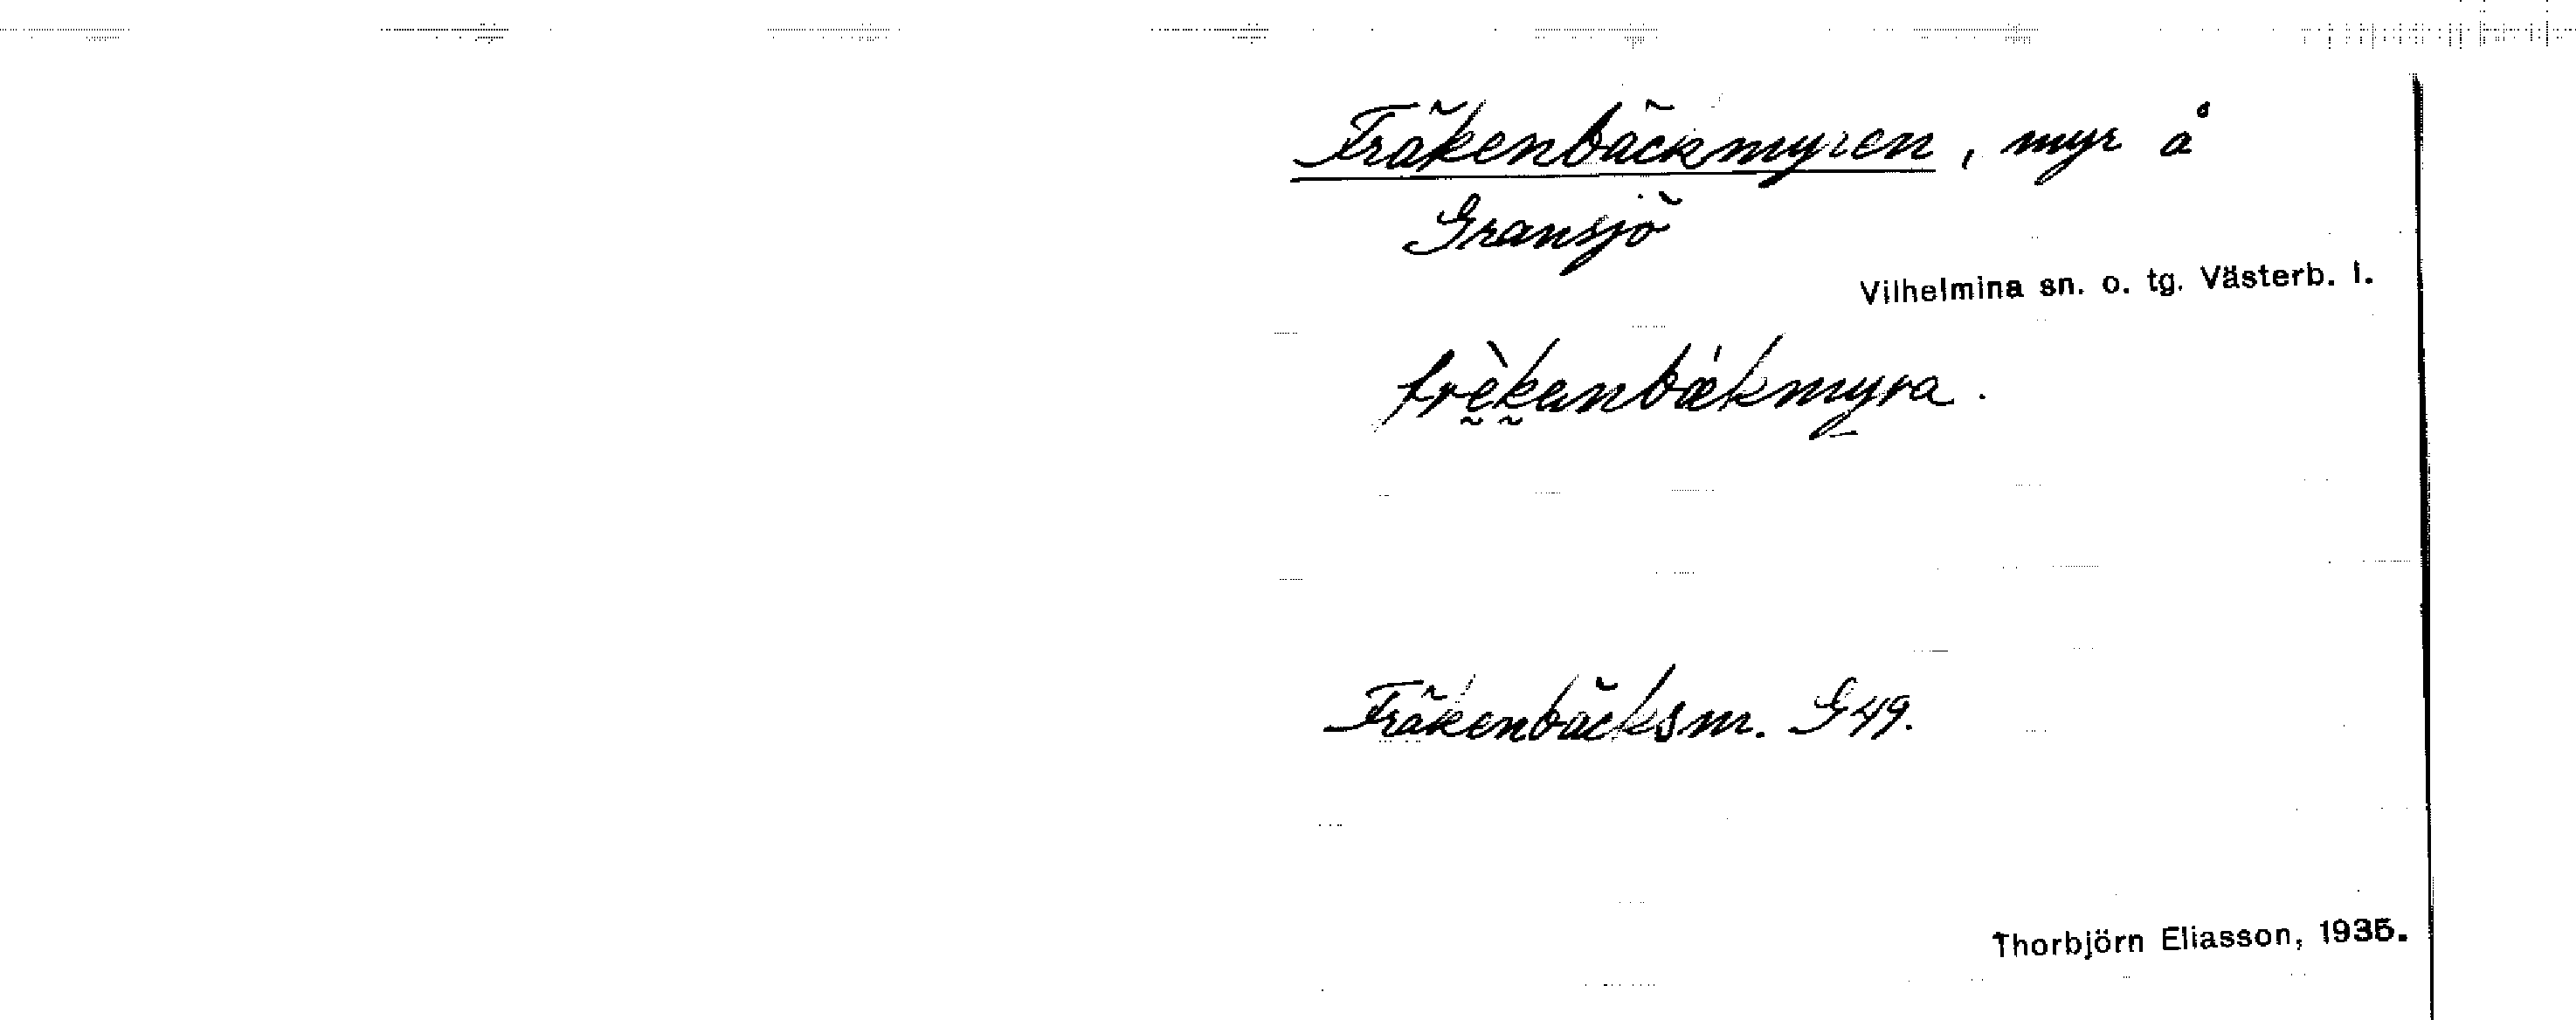 Fräkenbäckmyren, myr å
Gransjö
Vilhelmina sn. o. tg. Västerb. l.
frḛ̀k̰anbækmyra.
Fräkenbäcksm. G49.
Thorbjörn Eliasson, 1935.